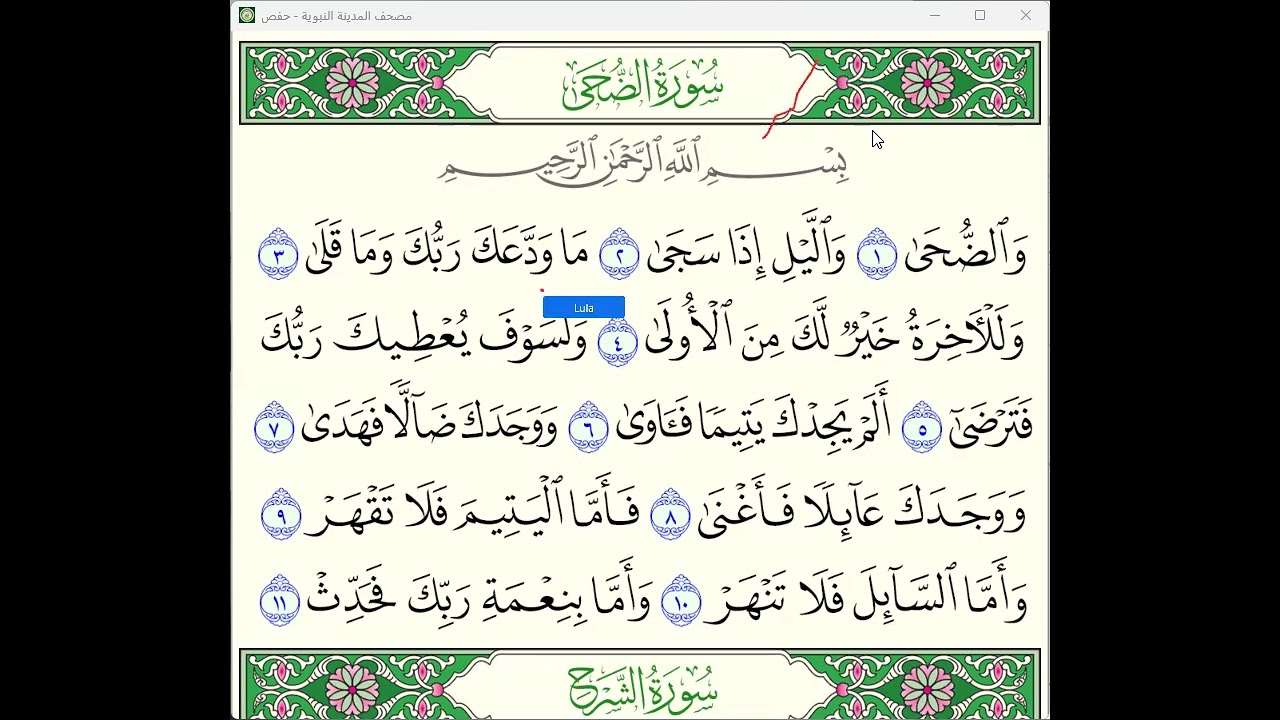 مصحف المدينة النبوية - حفص
سُورَةُ الضُّحَىٰ
بِسْمِ ٱللَّهِ ٱلرَّحْمَٰنِ ٱلرَّحِيمِ
وَٱلضُّحَىٰ ١ وَٱلَّيْلِ إِذَا سَجَىٰ ٢ مَا وَدَّعَكَ رَبُّكَ وَمَا قَلَىٰ ٣
Lula
وَلَلْأٓخِرَةُ خَيْرٌ لَّكَ مِنَ ٱلْأُولَىٰ ٤ وَلَسَوْفَ يُعْطِيكَ رَبُّكَ
فَتَرْضَىٰٓ ٥ أَلَمْ يَجِدْكَ يَتِيمًا فَـَٔاوَىٰ ٦ وَوَجَدَكَ ضَآلًّا فَهَدَىٰ ٧
وَوَجَدَكَ عَآئِلًا فَأَغْنَىٰ ٨ فَأَمَّا ٱلْيَتِيمَ فَلَا تَقْهَرْ ٩
وَأَمَّا ٱلسَّآئِلَ فَلَا تَنْهَرْ ١٠ وَأَمَّا بِنِعْمَةِ رَبِّكَ فَحَدِّثْ ١١
سُورَةُ الشَّرْحِ